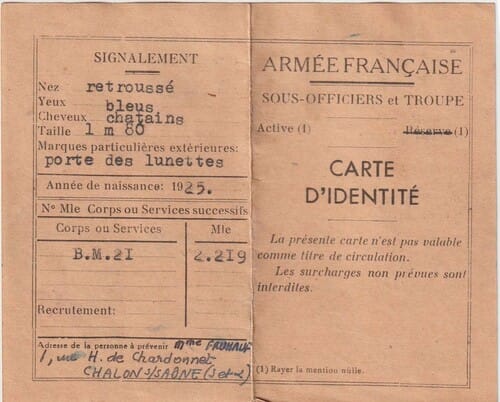 SIGNALEMENT
Nez retroussé
Yeux bleus
Cheveux chatains
Taille 1 m 80
Marques particulières extérieures:
porte des lunettes
Année de naissance: 1925.
Nº Mle Corps ou Services successifs
Corps ou Services Mle
B.M.21 2.219
Recrutement:
Adresse de la personne à prévenir Mme FRUHAUF
1, rue H. de Chardonnet
CHALON s/SAÔNE (S-et-L)
ARMÉE FRANÇAISE
SOUS-OFFICIERS et TROUPE
Active (1) Réserve (1)
CARTE
D'IDENTITÉ
La présente carte n'est pas valable
comme titre de circulation.
Les surcharges non prévues sont
interdites.
(1) Rayer la mention nûlle.